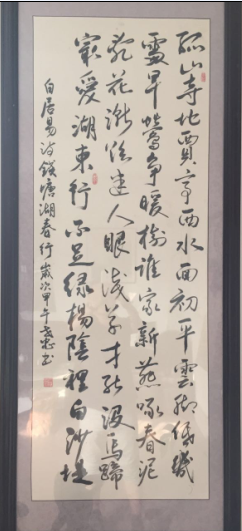 孤山寺北賈亭西水面初平雲脚低幾
處早鶯爭暖樹誰家新燕啄春泥
亂花漸欲迷人眼淺草才能沒馬蹄
最愛湖東行不足綠楊陰裡白沙堤
白居易詩錢塘湖春行歲次甲午書